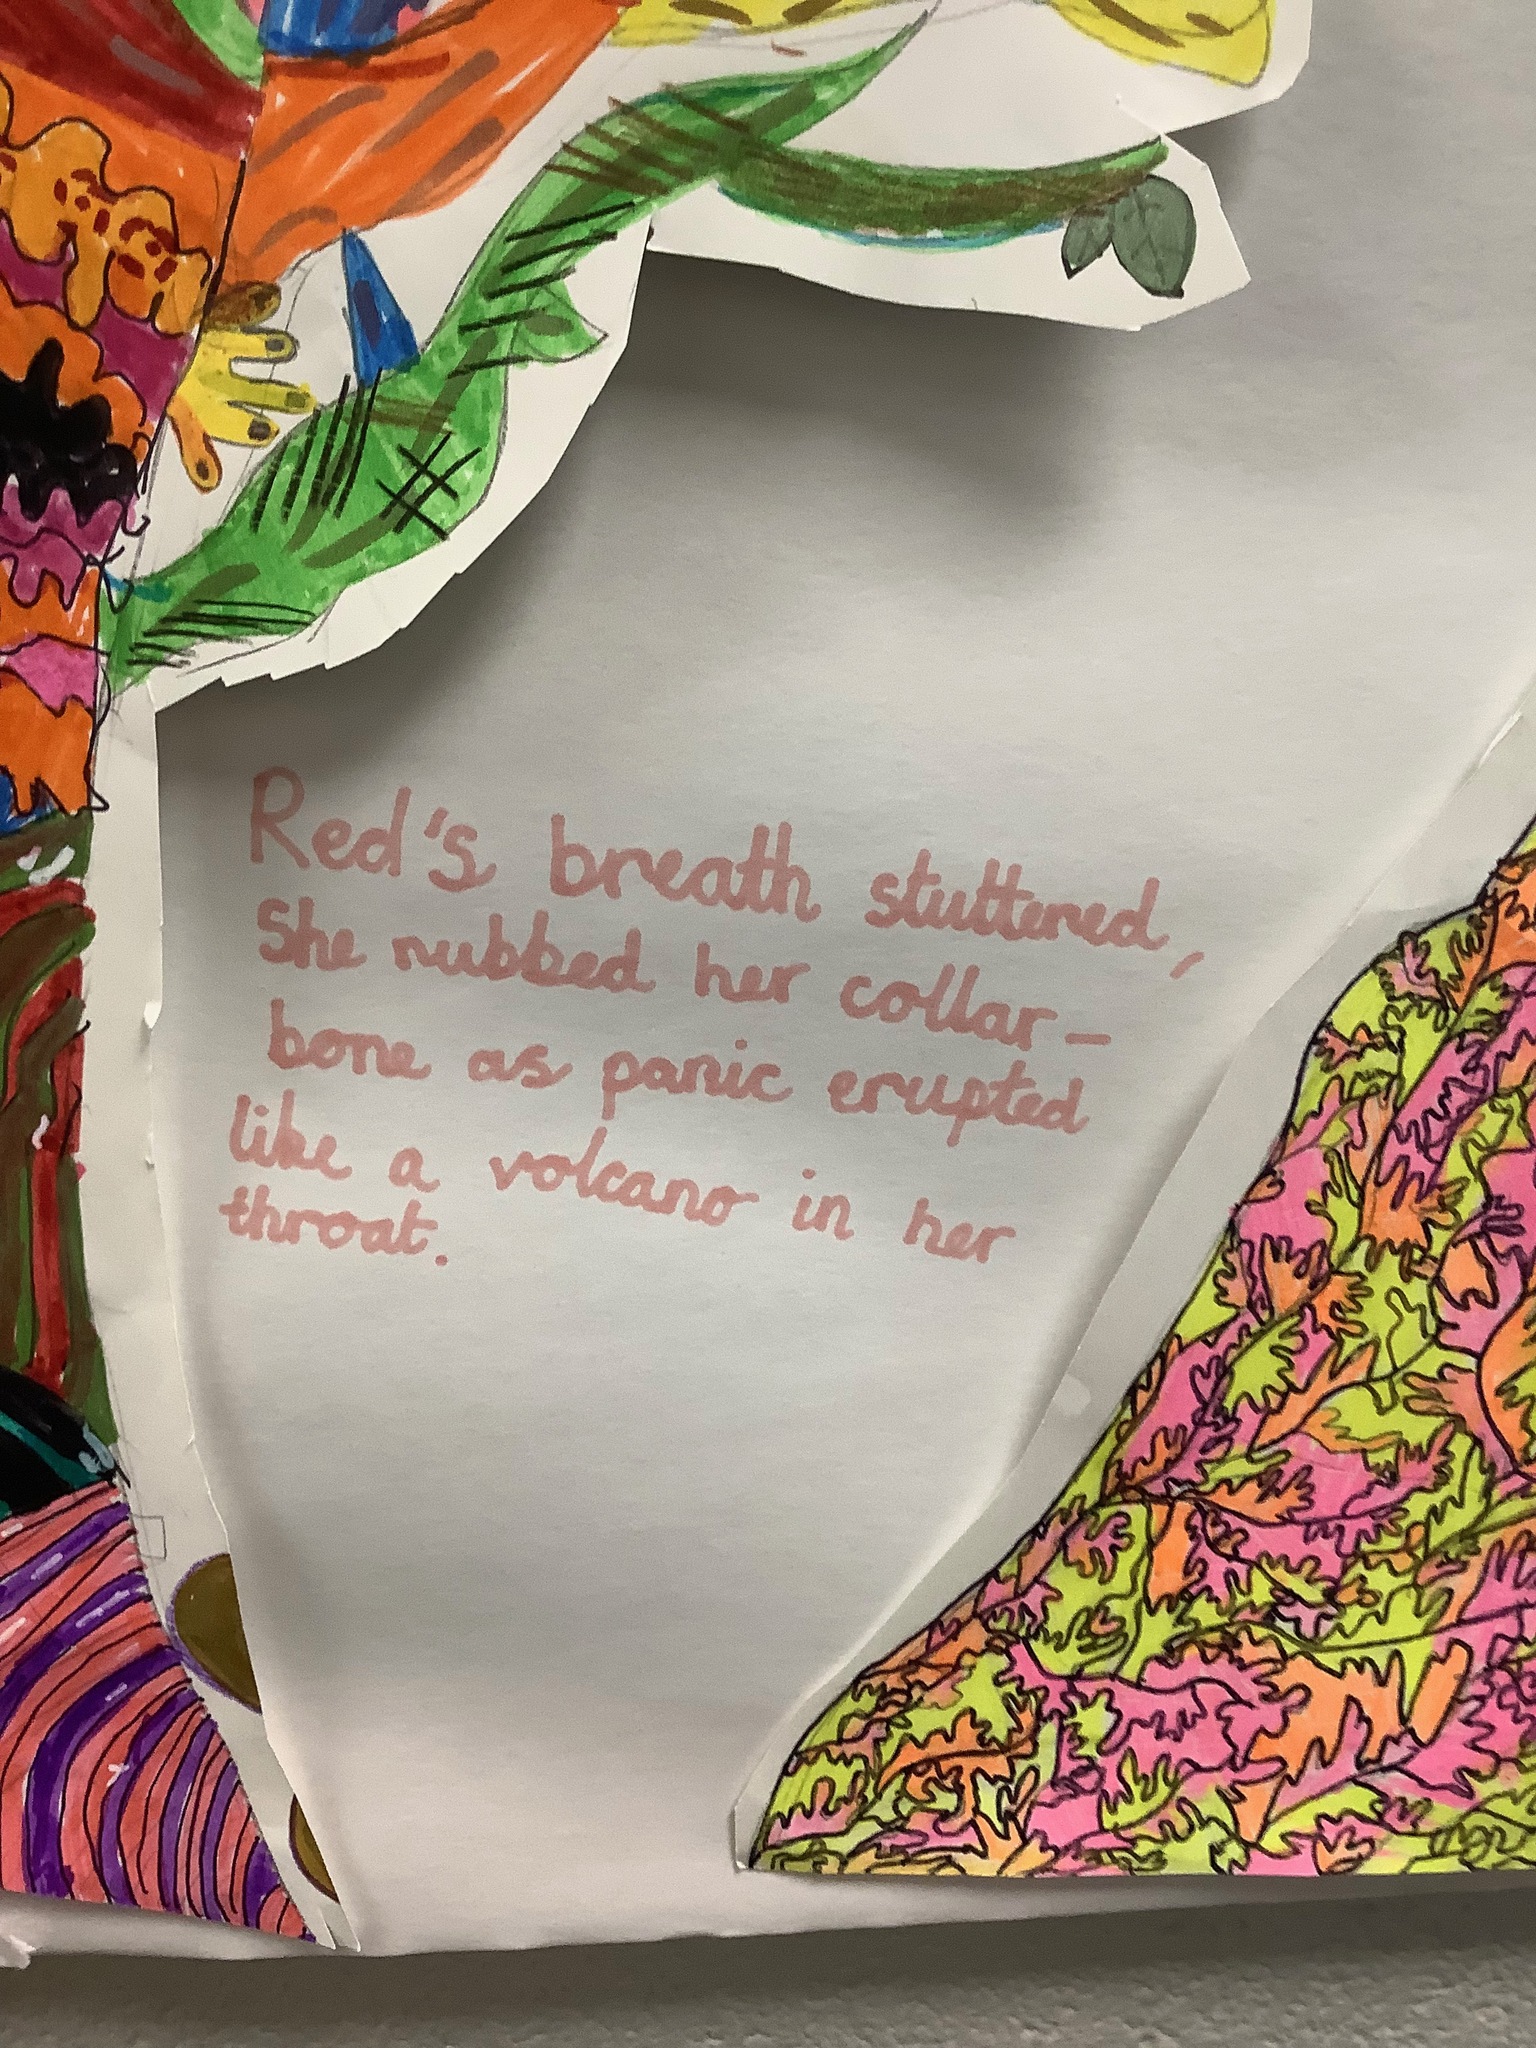 Red's breath stuttered,
She rubbed her collar-
bone as panic erupted
like a volcano in her
throat.